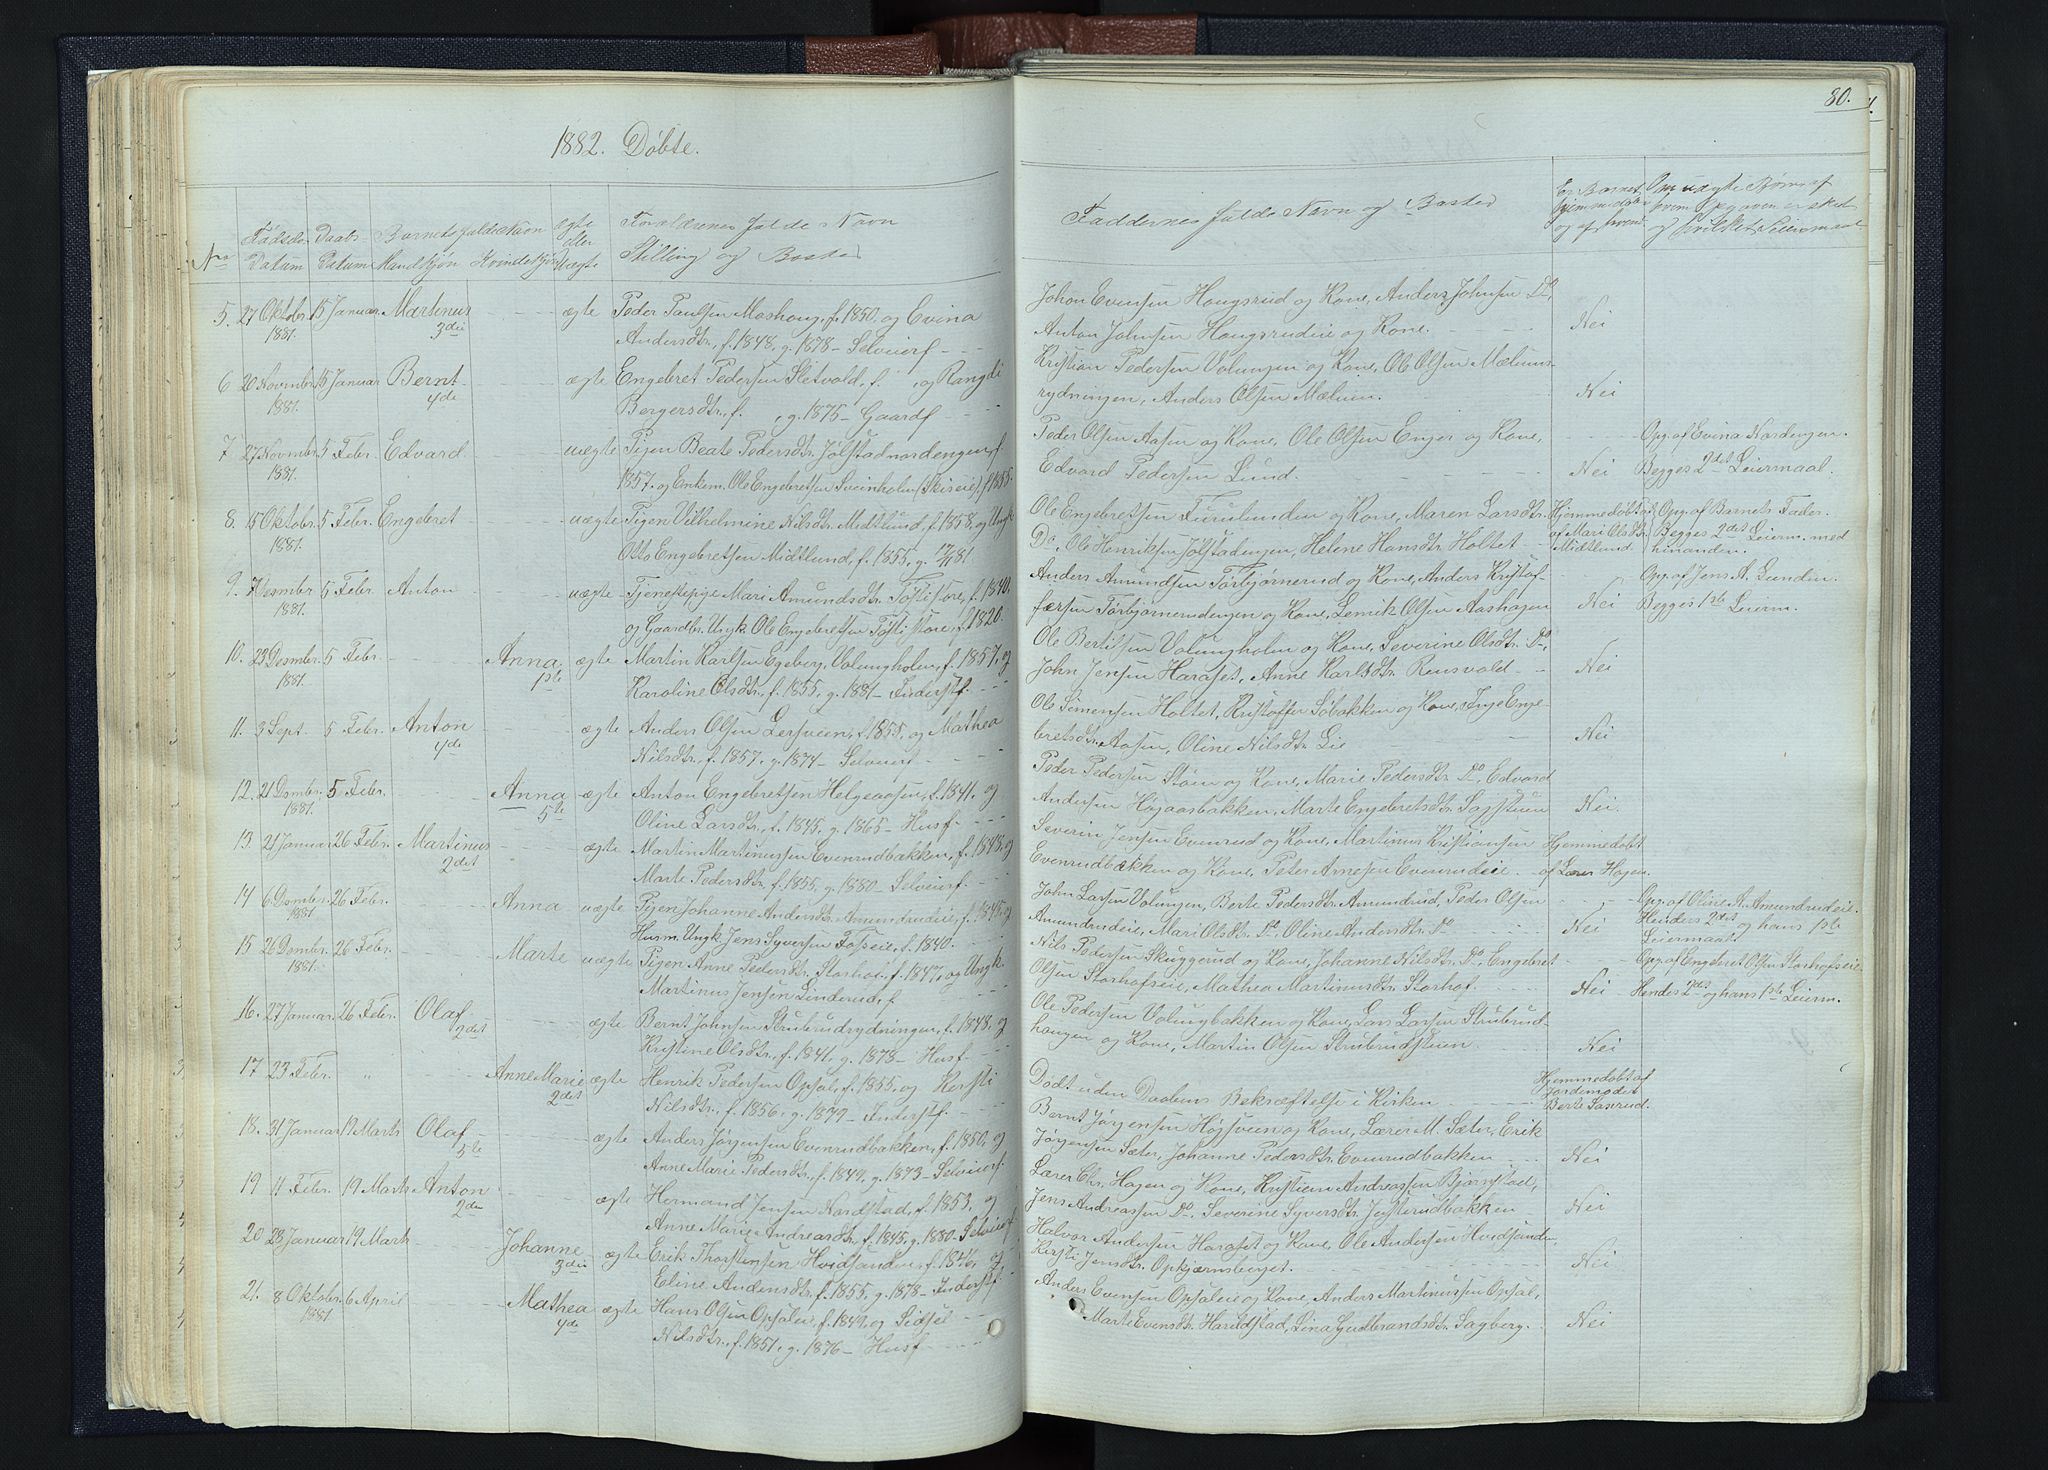 80.
1882. Döbte.
No
Födsels
Datum
Daabs
Datum
Barnets fulde Navn
Mandkjøn Kvindekjøn
ægte
eller
uægte
Forældrenes fulde Navn
Stilling og Bosted
Faddernes fulde Navn og Bosted
Er Barnet
hjemmedøbt
og af hvem
Om uægte Børn af
hvem Opgaven er sket
og hvilket Leiermaal
5. 27 Oktobr. 15 Januar. Martinus - - - ægte Peder Paulsen Moshaug, f. 1850, og Evina
1881. 3die Andersdtr., f. 1848, g. 1878 - Selveierf - - -
Johan Evensen Haugsrud og Kone, Anders Johnsen Do,
Anton Johnsen Haugsrudeie og Kone. - - - Nei
6 20 Novmbr. 15 Januar Bernt - - - ægte Engebret Pedersen Sletvold, f. , og Rangdi
1881. 4de Bergersdtr., f. , g. 1875 - Gaardf - - -
Kristian Pedersen Volungen og Kone, Ole Olsen Mælums-
rydningen, Anders Olsen Mælum. - - Nei
7 27 Novmbr. 5 Febr. Edvard - - - uægte Pigen Beate Pedersdtr. Jølstadnordengen, f.
1881. 1857. og Enkem. Ole Engebretsen Sveinholen (Skiseie), f. 1855.
Peder Olsen Aasen og Kone, Ole Olsen Enger og Kone, - - - Opg. af Evina Nordengen.
Edvard Pedersen Lund. - - - Nei Begges 2det Leiermaal.
8. 15 Oktobr. 5 Febr. Engebret - - - uægte Pigen Vilhelmine Nilsdtr. Midtlund, f. 1858, og Ungk.
1881. Otto Engebretsen Midtlund, f. 1855, g. 17/11 81.
Ole Engebretsen Furulunden og Kone, Maren Larsdtr. Hjemmedöbt Opg. af Barnets Fader.
Do, Ole Henriksen Jølstadengen, Helene Hansdtr. Holtet - af Mari Olsdtr. Begges 2det Leierm. med
Midtlund. hinanden.
9. 7 Desmbr. 5 Febr. Anton - - - uægte Tjenestepige Mari Amundsdtr. Fösti store, f. 1840,
1881. og Gaardbr. Ungk. Ole Engebretsen Fösti store, f. 1820.
Anders Amundsen Törbjörnerud og Kone, Anders Kristof- - - - Opg. af Jens A. Lundin.
fersen Törbjörnerudengen og Kone, Lenrik Olsen Aashagen Nei Begges 1ste Leierm.
10. 23 Desmbr. 5 Febr. - - - Anna ægte Martin Karlsen Egeberg, Volungholen, f. 1857, og
1881. 1ste Karoline Olsdtr., f. 1855, g. 1881 - Inderstf. - - -
Ole Bertilsen Volungholen og Kone, Severine Olsdtr. Do,
John Jensen Haraset, Anne Karlsdtr. Rensvold - - Nei
11. 3 Sept. 5 Febr. Anton - - - ægte Anders Olsen Lersveen, f. 1855, og Mathea
4de Nilsdtr., f. 1857, g. 1874 - Selveierf - - -
Ole Simensen Holtet, Kristoffer Söbakken og Kone, Inge Enge-
bretsdtr. Aasen, Oline Nilsdtr. Lie - - - Nei
12. 21 Dsmbr. 5 Febr. - - - Anna ægte Anton Engebretsen Helgeaasen, f. 1841. og
1881. 5te Oline Larsdtr., f. 1845, g. 1865 - Husf. - - -
Peder Pedersen Stöen og Kone, Marie Pedersdtr. Do, Edvard
Andersen Høgaasbakken, Marte Engebretsdtr. Sagstuen Nei.
13. 21 Januar 26 Febr. Martinus - - - ægte Martin Martinussen Evenrudbakken, f. 1548, og
2det Marte Pedersdtr., f. 1855, g. 1880 - Selveierf. - - -
Severin Jensen Evenrud og Kone, Martinus Kristiansen Hjemmedöbt
Evenrudbakken og Kone, Peter Arnesen Evenrudeie. - af Lærer Hagen.
14 6 Dsmbr. 26 Febr. - - - Anna uægte Pigen Johanne Andersdtr. Amundrudeie, f. 1845, og
1881. Husm. Ungk. Jens Syversen Fosseie, f. 1840. - - -
John Larsen Volungen, Berte Pedersdtr. Amundrud, Peder Olsen - - - Opg. af Oline A. Amundrudeie.
Amundrudeie, Mari Olsdtr. Do, Oline Andersdtr. Do - - Nei Hendes 2det og hans 1ste
Leiermaal.
15 26 Dsmbr. 26 Febr. - - - Marte uægte Pigen Anne Pedersdtr. Storhof, f. 1847, og Ungk.
1881. Martinus Jensen Linderud, f.
Nils Pedersen Skuggerud og Kone, Johanne Nilsdtr. Do, Engebret - - - Opg. af Engebret Olsen Storhofseie
Olsen Storhofseie, Mathea Martinusdtr. Storhof. - - - Nei Hendes 2det og hans 1ste Leierm.
16. 27 Januar 26 Febr. Olaf - - - ægte Bernt Johnsen Strubrudrydningen, f. 1848. og
2det Kristine Olsdtr., f. 1841, g. 1873 - Husf - - -
Ole Pedersen Volungbakken og Kone, Lars Larsen Strubrud-
haugen og Kone, Martin Olsen Strubrudstuen - - - Nei
17 23 Febr. " - - - Anne Marie ægte Henrik Pedersen Opsal, f. 1855, og Kersti
2det Nilsdtr., f. 1856, g. 1879 - Inderstf. - - -
Dødt uden Daabens Bekræftelse i Kirken - - - Hjemmedöbt af
Jordemoder
Berte Saxrud.
18. 31 Januar 19 Marts Olaf - - - ægte Anders Jørgensen Evenrudbakken, f. 1850, og
5te Anne Marie Pedersdtr., f. 1849, g. 1873 - Selveierf.
Bernt Jørgensen Högsveen og Kone, Lærer M. Sæter, Erik
Jørgensen Sæter, Johanne Pedersdtr. Evenrudbakken - - - Nei
19 11 Febr. 19 Marts Anton - - - ægte Hermand Jensen Nordstad, f. 1853, og
2den Anne Marie Andreasdtr., f. 1845, g. 1880 - Selveierf
Lærer Chr. Hagen og Kone, Kristian Andreassen Bjørnstad,
Jens Andreassen Do, Severine Syversdtr. Jysterudbakken - Nei
20 28 Januar 19 Marts - - - Johanne ægte Erik Thorstensen Hvidsanden, f. 1846, og
3die Eline Andersdtr., f. 1855, g. 1878 - Inderstf.
Halvor Andersen Haraset og Kone, Ole Andersen Hvidsanden,
Kersti Jensdtr. Opkjærnsberget. - - - Nei
21. 8 Oktobr. 6 April - - - Mathea ægte Hans Olsen Opsaleie, f. 1849, og Sidsel -
1881. 4de Nilsdtr., f. 1851, g. 1876 - Husf - - -
Anders Evensen Opsaleie og Kone, Anders Martinussen Opsal,
Marte Evensdtr. Harildstad, Lina Gudbrandsdtr. Sagberg. - Nei